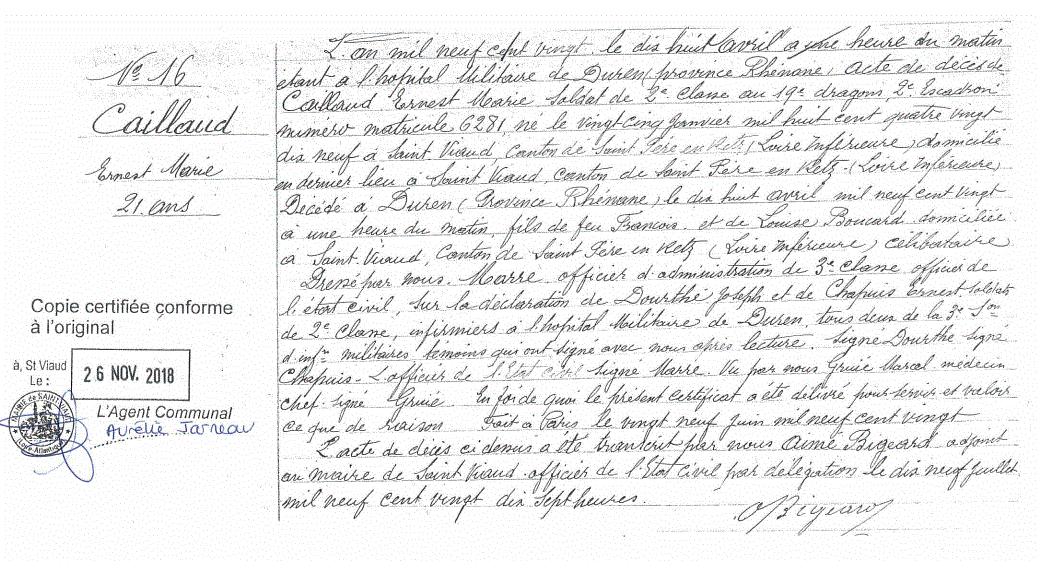 N° 16
Caillaud
Ernest Marie
21 ans
Copie certifiée conforme
à l'original
à, St Viaud
Le :
26 NOV. 2018
L'Agent Communal
Aurélie Jarneau
MAIRIE de SAINT-VIAUD
Loire-Atlantique
L'an mil neuf cent vingt le dix huit Avril à une heure du matin
étant à l'hopital Militaire de Duren (province Rhénane) Acte de décès de
Caillaud Ernest Marie Soldat de 2e Classe au 19e dragons, 2e Escadron
numéro matricule 6281, né le vingt cinq Janvier mil huit cent quatre vingt
dix neuf à Saint Viaud, Canton de Saint Père en Retz (Loire Inférieure) domicilié
en dernier lieu à Saint Viaud, canton de Saint Père en Retz (Loire Inférieure)
Décédé à Duren (Province Rhénane) le dix huit avril mil neuf cent vingt
à une heure du matin, fils de feu Francois et de Louise Boucard domiciliée
à Saint Viaud, Canton de Saint Père en Retz (Loire Inférieure) célibataire
Dressé par nous Marre officier d'administration de 3e classe officier de
l'état civil, sur la déclaration de Dourthe Joseph et de Chapuis Ernest soldats
de 2e Classe, infirmiers à l'hopital Militaire de Duren, tous deux de la 3e Son
d'infrs militaires, témoins qui ont signé avec nous après lecture. Signé Dourthe signé
Chapuis - L'officier de l'Etat civil signé Marre. Vu par nous Gruie Marcal médecin
chef signé Gruie En foi de quoi le présent certificat a été délivré pour servir et valoir
ce que de raison Fait à Paris le vingt neuf Juin mil neuf cent vingt
L'acte de décès ci dessus a été transcrit par nous Aimé Bigeard adjoint
au maire de Saint Viaud officier de l'Etat Civil par délégation le dix neuf Juillet
mil neuf cent vingt dix sept heures.
Bigeard